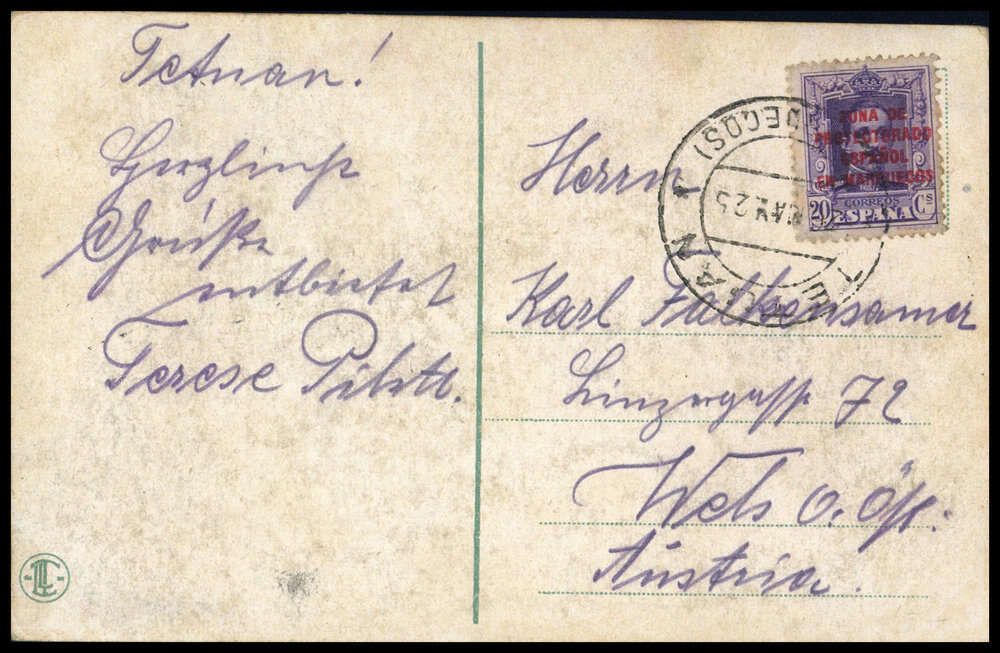 Tetuan!
Herzliche
Grüße
entbietet
Terese
Herrn
Karl Falkensamer
Linzergasse 72
Wels o. Öst.
Austria.
ZONA DE
PROTECTORADO
ESPAÑOL
EN MARRUECOS
CORREOS
20 ESPAÑA Cs
MAY.25